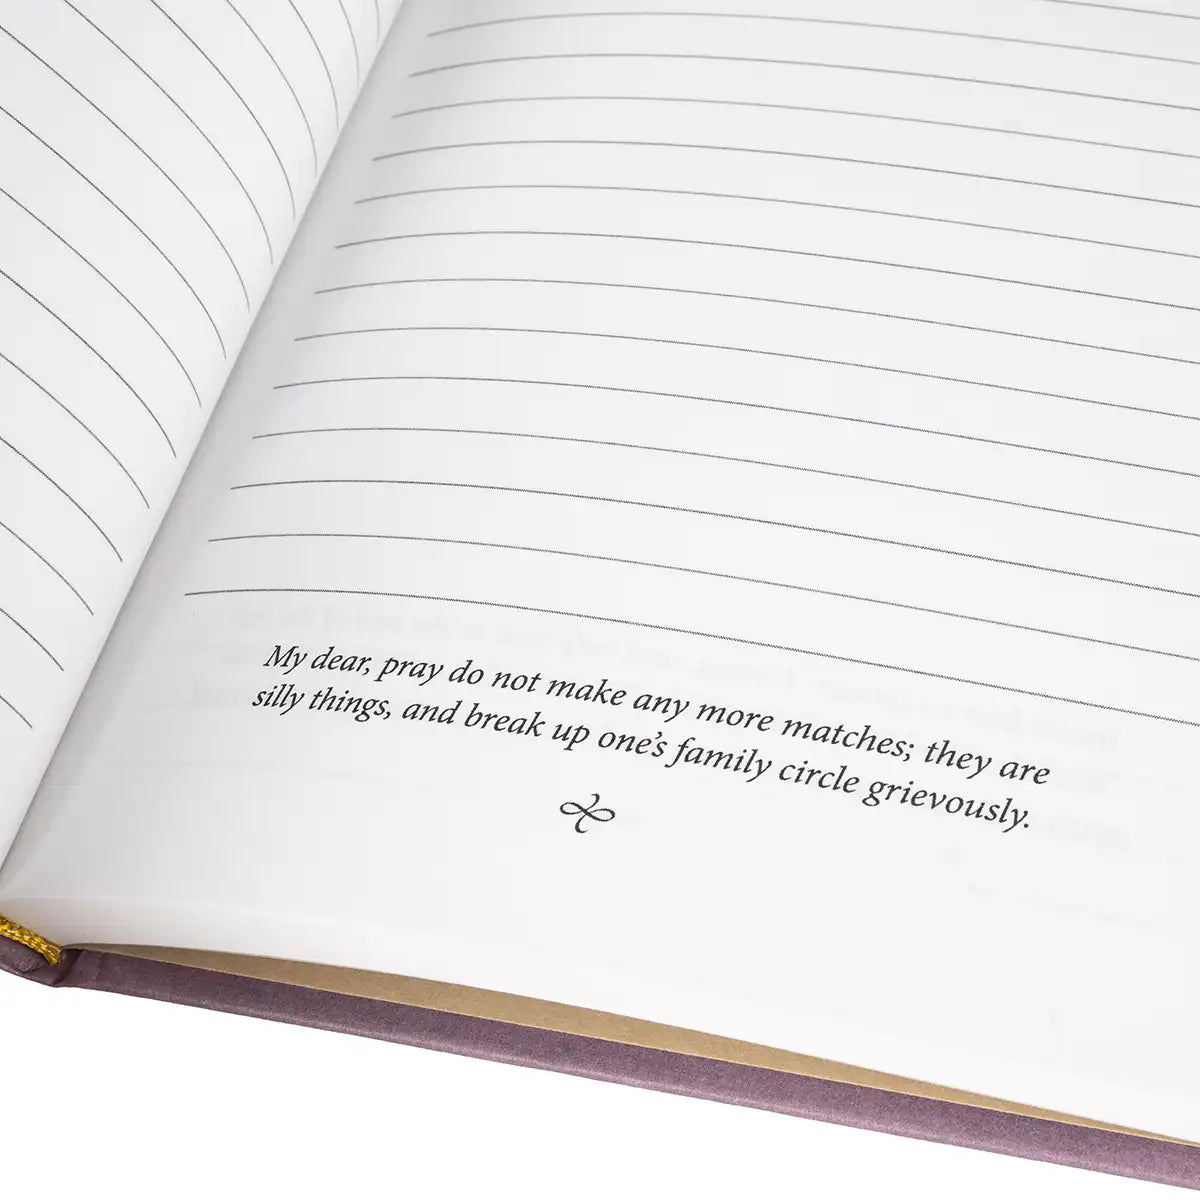 My dear, pray do not make any more matches; they are
silly things, and break up one's family circle grievously.